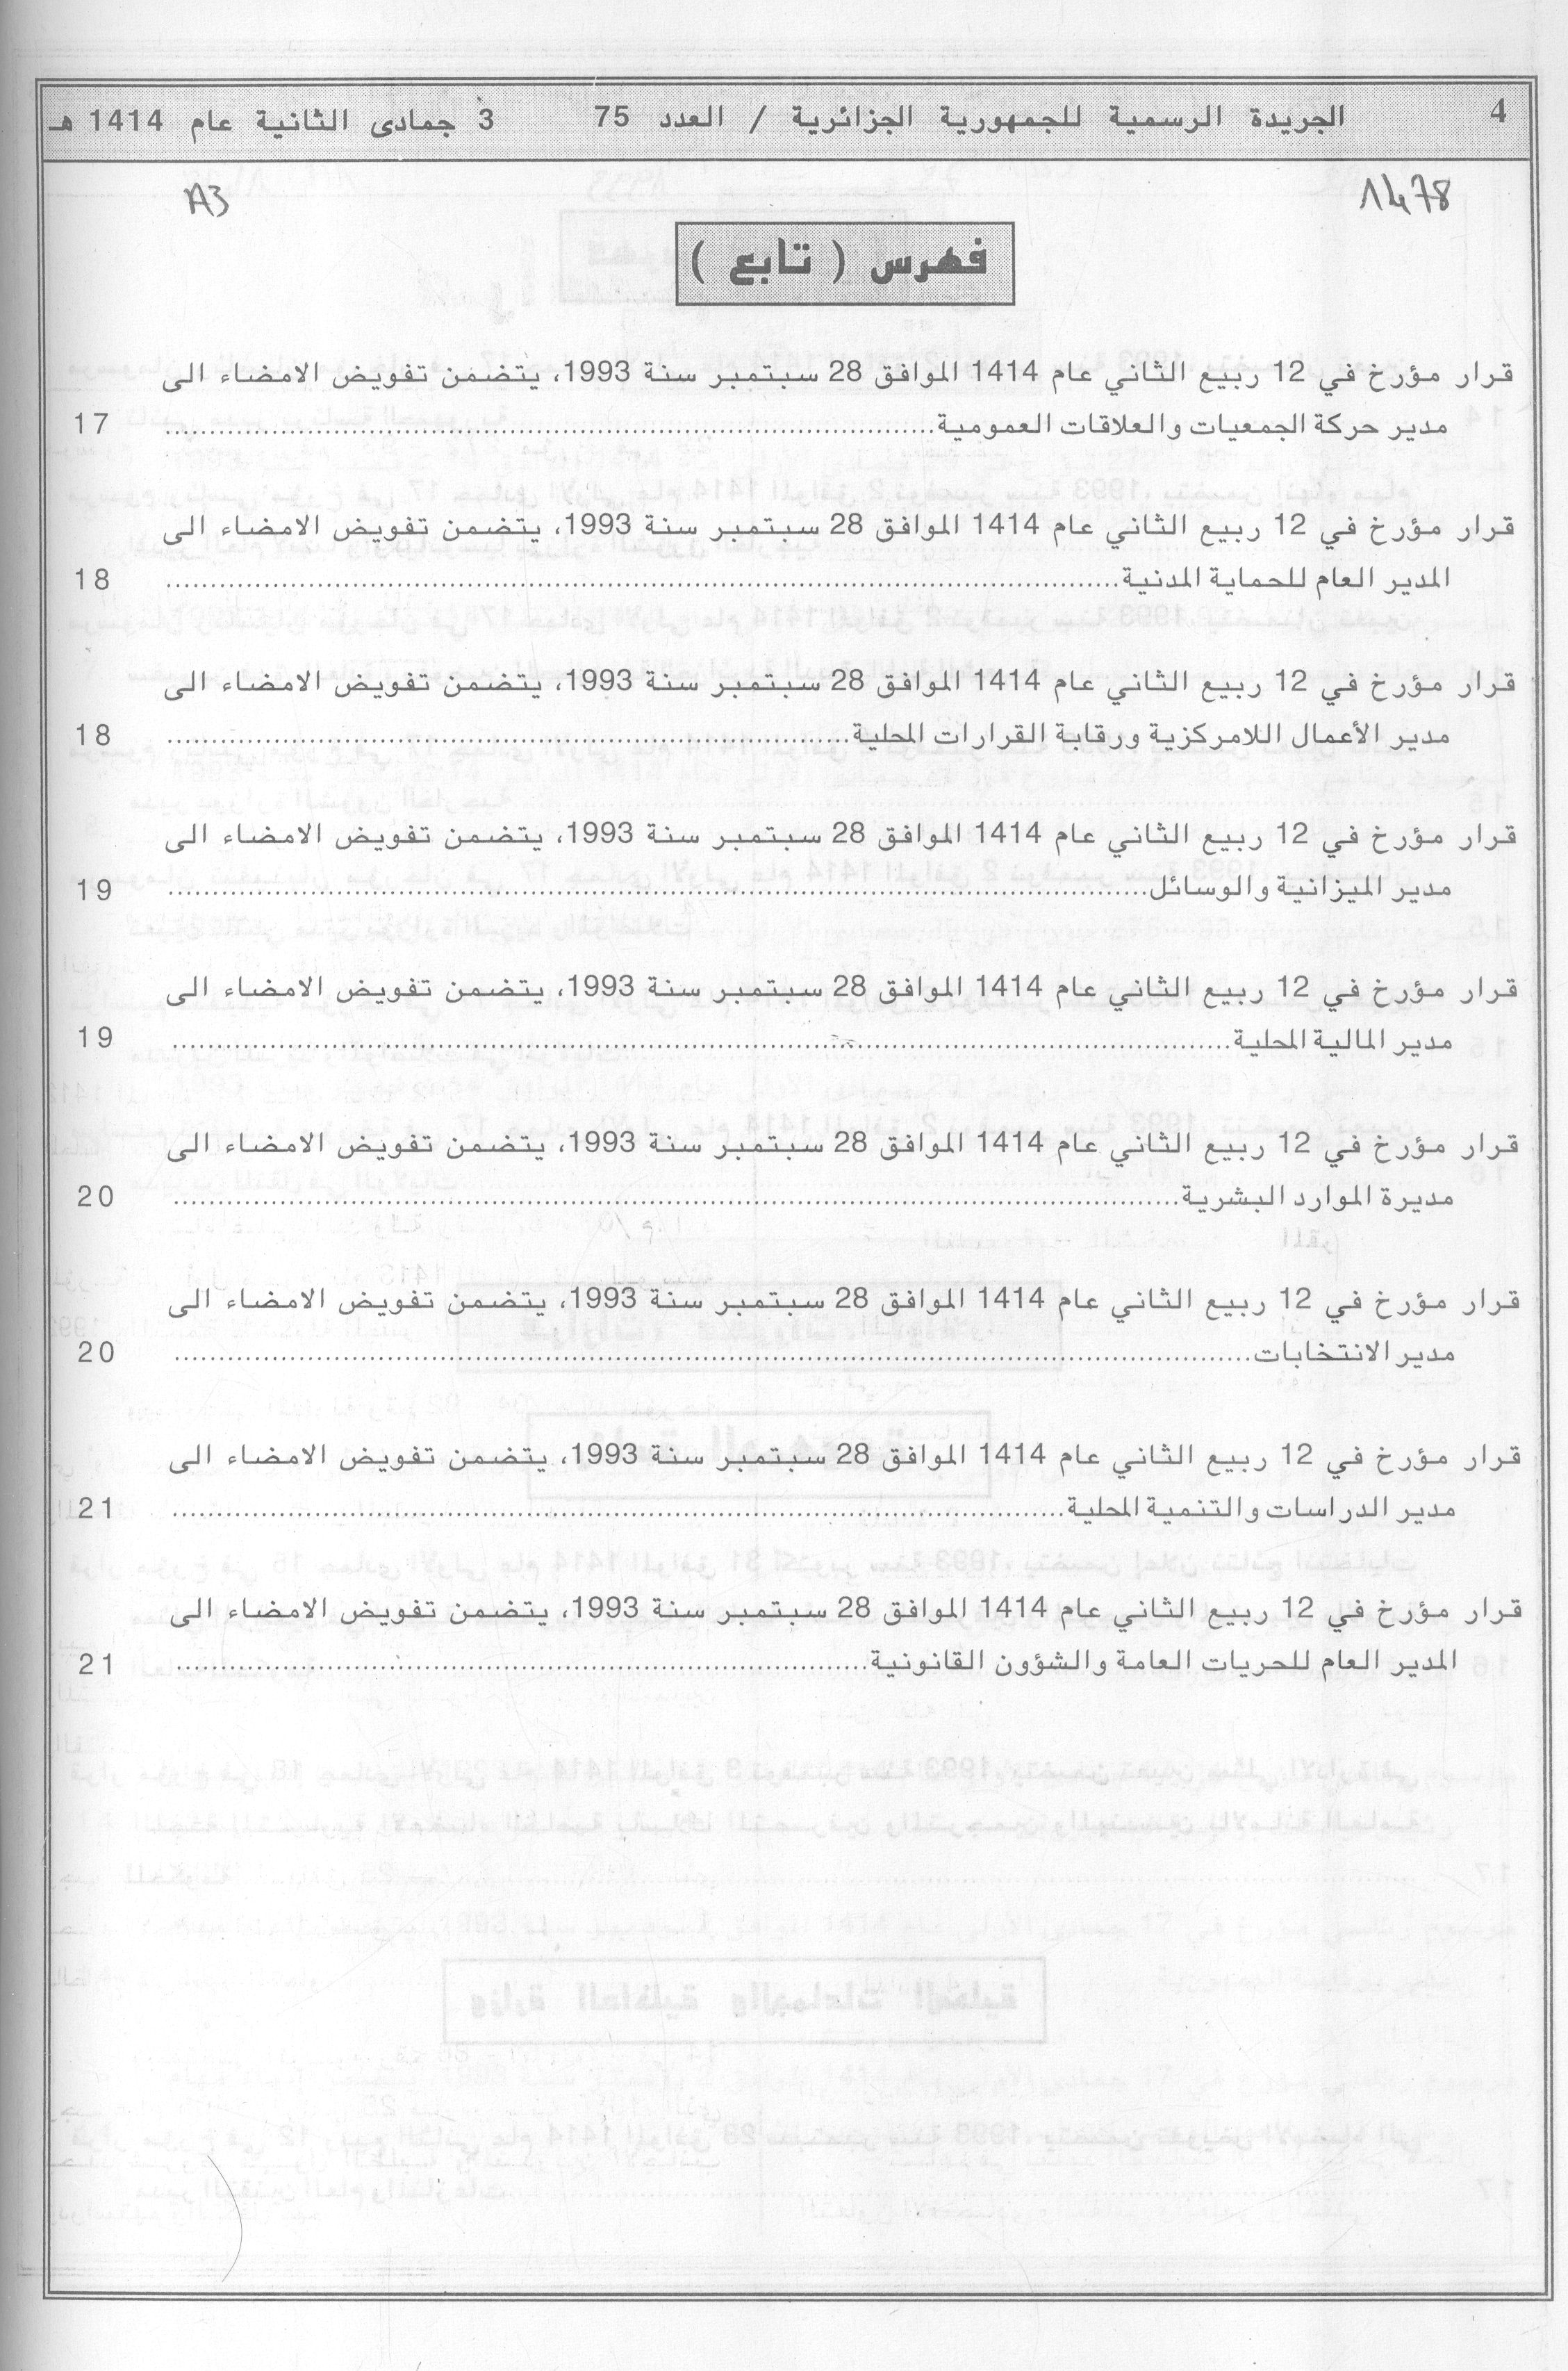 4 الجريدة الرسمية للجمهورية الجزائرية / العدد 75 3 جمادى الثانية عام 1414 هـ
1478 A3
فهرس ( تابع )
قرار مؤرخ في 12 ربيع الثاني عام 1414 الموافق 28 سبتمبر سنة 1993، يتضمن تفويض الامضاء الى
مدير حركة الجمعيات والعلاقات العمومية 17
قرار مؤرخ في 12 ربيع الثاني عام 1414 الموافق 28 سبتمبر سنة 1993، يتضمن تفويض الامضاء الى
المدير العام للحماية المدنية 18
قرار مؤرخ في 12 ربيع الثاني عام 1414 الموافق 28 سبتمبر سنة 1993، يتضمن تفويض الامضاء الى
مدير الأعمال اللامركزية ورقابة القرارات المحلية 18
قرار مؤرخ في 12 ربيع الثاني عام 1414 الموافق 28 سبتمبر سنة 1993، يتضمن تفويض الامضاء الى
مدير الميزانية والوسائل 19
قرار مؤرخ في 12 ربيع الثاني عام 1414 الموافق 28 سبتمبر سنة 1993، يتضمن تفويض الامضاء الى
مدير المالية المحلية 19
قرار مؤرخ في 12 ربيع الثاني عام 1414 الموافق 28 سبتمبر سنة 1993، يتضمن تفويض الامضاء الى
مديرة الموارد البشرية 20
قرار مؤرخ في 12 ربيع الثاني عام 1414 الموافق 28 سبتمبر سنة 1993، يتضمن تفويض الامضاء الى
مدير الانتخابات 20
قرار مؤرخ في 12 ربيع الثاني عام 1414 الموافق 28 سبتمبر سنة 1993، يتضمن تفويض الامضاء الى
مدير الدراسات والتنمية المحلية 21
قرار مؤرخ في 12 ربيع الثاني عام 1414 الموافق 28 سبتمبر سنة 1993، يتضمن تفويض الامضاء الى
المدير العام للحريات العامة والشؤون القانونية 21